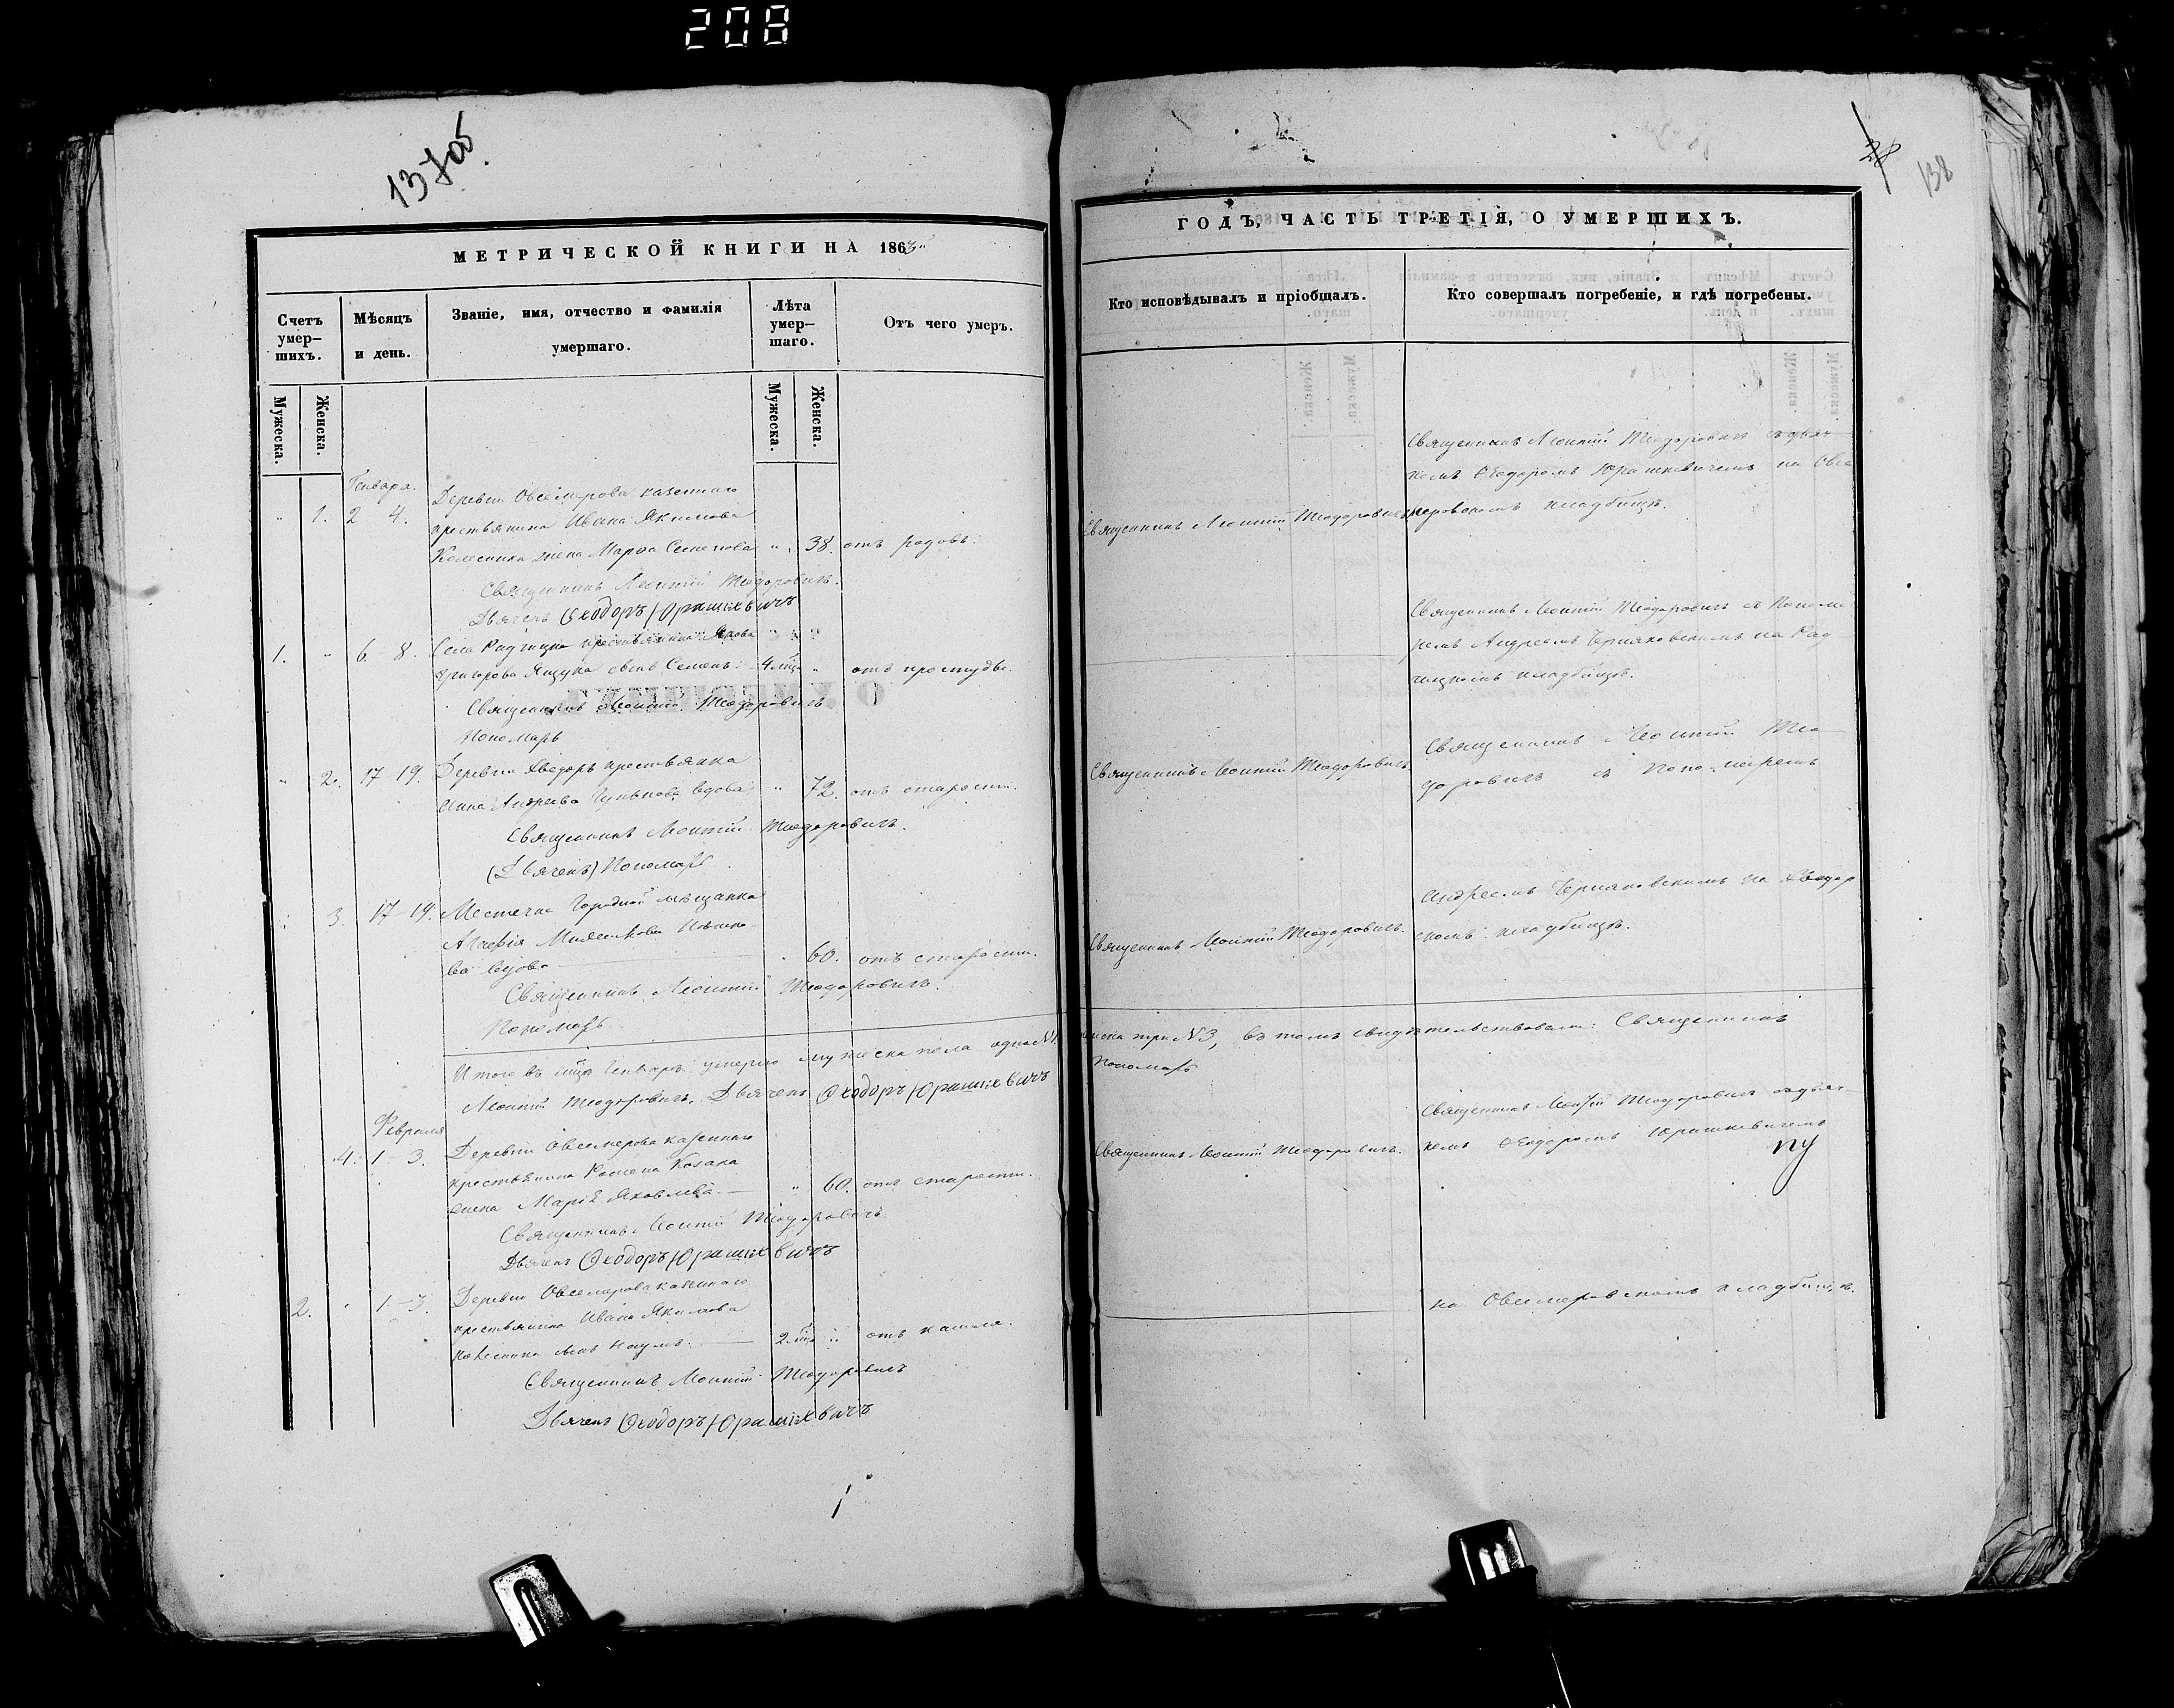 208
137об.
МЕТРИЧЕСКОЙ КНИГИ НА 1863
Счетъ умер-шихъ.
Мѣсяцъ и день.
Званіе, имя, отчество и фамилія умершаго.
Лѣта умер-шаго.
Отъ чего умеръ.
Мужеска.
Женска.
Мужеска.
Женска.
Генваря.
1. 2 4. Деревни Овсемерова казеннаго
крестьянина Ивана Якимова
Колесника жена Марѳа Семенова 38. отъ родовъ.
Священникъ Леонтій Теодоровичъ.
Дьячекъ Ѳеодоръ Юрашкевичъ
1. 6. 8. Села Радчицка крестьянина Якова
Григорова сынъ Семенъ. 4 мца отъ простуды.
Священникъ Леонтій Теодоровичъ
Пономарь
2. 17 19. Деревни крестьянка
Анна Андреева вдова 72. отъ старости.
Священникъ Леонтій Теодоровичъ.
(Дьячекъ) Пономарь
3. 17-19. Местечка Городной мѣщанка
Агафія
ва вдова 60. отъ старости.
Священникъ Леонтій Теодоровичъ.
Пономарь
Итого въ мцѣ Генварѣ умерло мужеска пола одна №1.
Леонтій Теодоровичъ, Дьячекъ Ѳеодоръ Юрашкевичъ
Февраля
4. 1-3. Деревни Овсемерова казеннаго
крестьянина Козака
жена Марія Яковлева 60. отъ старости.
Священникъ Леонтій Теодоровичъ
Дьячекъ Ѳеодоръ Юрашкевичъ
2. 1-3. Деревни Овсемерова казеннаго
крестьянина Ивана Якимова
Колесника сынъ Наумъ. 2 мца отъ кашля.
Священникъ Леонтій Теодоровичъ
Дьячекъ Ѳеодоръ Юрашкевичъ
28
138
ГОДЪ, ЧАСТЬ ТРЕТІЯ, О УМЕРШИХЪ.
Кто исповѣдывалъ и пріобщалъ.
Кто совершалъ погребеніе, и гдѣ погребены.
Священникъ Леонтій Теодоровичъ съ дьяч-
комъ Ѳеодоромъ Юрашкевичемъ на Овсе
Священникъ Леонтій Теодоровичъ
меровскомъ кладбищѣ.
Священникъ Леонтій Теодоровичъ съ Понома
ремъ Андреемъ Черняковскимъ на Рад
чицкомъ кладбищѣ.
Священникъ Леонтій Теодоровичъ
Священникъ Леонтій Тео-
доровичъ съ Пономаремъ
Андреемъ Черняковскимъ на
Священникъ Леонтій Теодоровичъ.
скомъ кладбищѣ.
женска три №3, въ томъ свидѣтельствовали: Священникъ
Пономарь
Священникъ Леонтій Теодоровичъ съ дьяч-
Священникъ Леонтій Теодоровичъ.
комъ Ѳеодоромъ Юрашкевичемъ
на Овсемеровскомъ кладбищѣ.